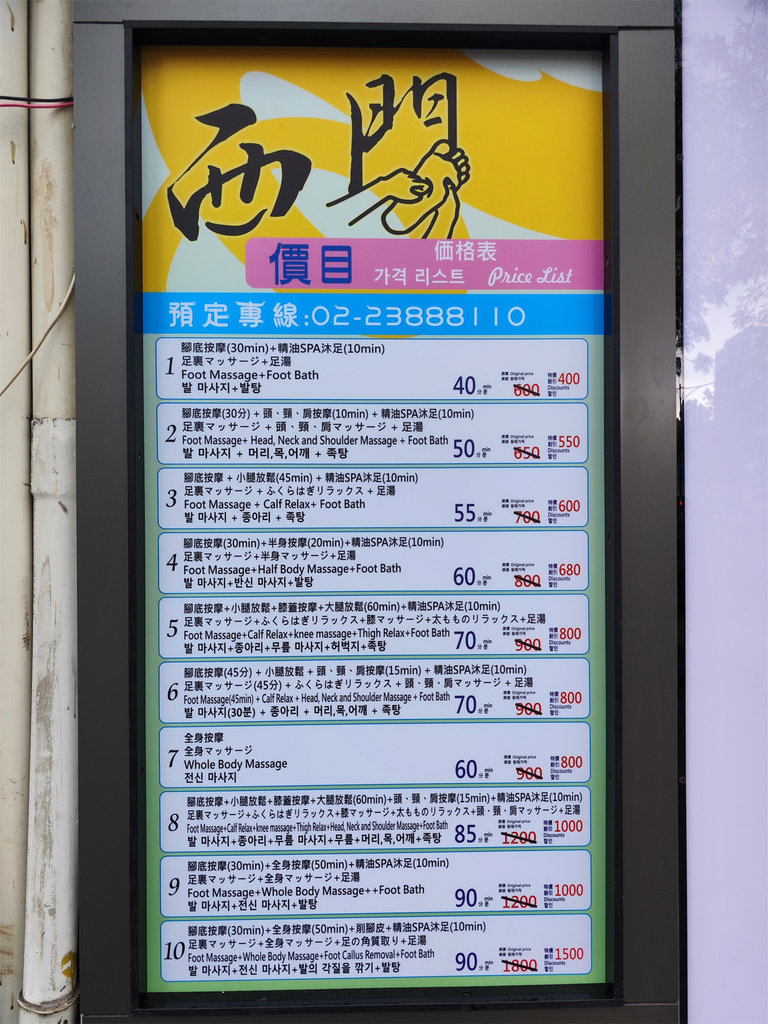 西門
價目
価格表
가격 리스트 Price List
預定專線:02-23888110
1
腳底按摩(30min)+精油SPA沐足(10min)
足裏マッサージ+足湯
Foot Massage+Foot Bath
발 마사지+발탕
40 min 分 분
原價 Original price
600
特價 割引 Discounts 할인
400
2
腳底按摩(30分) + 頭、頸、肩按摩(10min) + 精油SPA沐足(10min)
足裏マッサージ + 頭、頸、肩マッサージ + 足湯
Foot Massage+ Head, Neck and Shoulder Massage + Foot Bath
발 마사지 + 머리,목,어깨 + 족탕
50 min 分 분
原價 Original price
650
特價 割引 Discounts 할인
550
3
腳底按摩 + 小腿放鬆(45min) + 精油SPA沐足(10min)
足裏マッサージ + ふくらはぎリラックス + 足湯
Foot Massage + Calf Relax+ Foot Bath
발 마사지 + 종아리 + 족탕
55 min 分 분
原價 Original price
700
特價 割引 Discounts 할인
600
4
腳底按摩(30min)+半身按摩(20min)+精油SPA沐足(10min)
足裏マッサージ+半身マッサージ+足湯
Foot Massage+Half Body Massage+Foot Bath
발 마사지+반신 마사지+발탕
60 min 分 분
原價 Original price
800
特價 割引 Discounts 할인
680
5
腳底按摩+小腿放鬆+膝蓋按摩+大腿放鬆(60min)+精油SPA沐足(10min)
足裏マッサージ+ふくらはぎリラックス+膝マッサージ+太もものリラックス+足湯
Foot Massage+Calf Relax+knee massage+Thigh Relax+Foot Bath
발 마사지+종아리+무릎 마사지+허벅지+족탕
70 min 分 분
原價 Original price
900
特價 割引 Discounts 할인
800
6
腳底按摩(45分) + 小腿放鬆 + 頭、頸、肩按摩(15min) + 精油SPA沐足(10min)
足裏マッサージ(45分) + ふくらはぎリラックス + 頭、頸、肩マッサージ + 足湯
Foot Massage(45min) + Calf Relax + Head, Neck and Shoulder Massage + Foot Bath
발 마사지(30분) + 종아리 + 머리,목,어깨 + 족탕
70 min 分 분
原價 Original price
900
特價 割引 Discounts 할인
800
7
全身按摩
全身マッサージ
Whole Body Massage
전신 마사지
60 min 分 분
原價 Original price
900
特價 割引 Discounts 할인
800
8
腳底按摩+小腿放鬆+膝蓋按摩+大腿放鬆(60min)+頭、頸、肩按摩(15min)+精油SPA沐足(10min)
足裏マッサージ+ふくらはぎリラックス+膝マッサージ+太もものリラックス+頭、頸、肩マッサージ+足湯
Foot Massage+Calf Relax+knee massage+Thigh Relax+Head, Neck and Shoulder Massage+Foot Bath
발 마사지+종아리+무릎 마사지+무릎+머리,목,어깨+족탕
85 min 分 분
原價 Original price
1200
特價 割引 Discounts 할인
1000
9
腳底按摩(30min)+全身按摩(50min)+精油SPA沐足(10min)
足裏マッサージ+全身マッサージ+足湯
Foot Massage+Whole Body Massage++Foot Bath
발 마사지+전신 마사지+발탕
90 min 分 분
原價 Original price
1200
特價 割引 Discounts 할인
1000
10
腳底按摩(30min)+全身按摩(50min)+削腳皮+精油SPA沐足(10min)
足裏マッサージ+全身マッサージ+足の角質取り+足湯
Foot Massage+Whole Body Massage+Foot Callus Removal+Foot Bath
발 마사지+전신 마사지+발의 각질을 깎기+발탕
90 min 分 분
原價 Original price
1800
特價 割引 Discounts 할인
1500